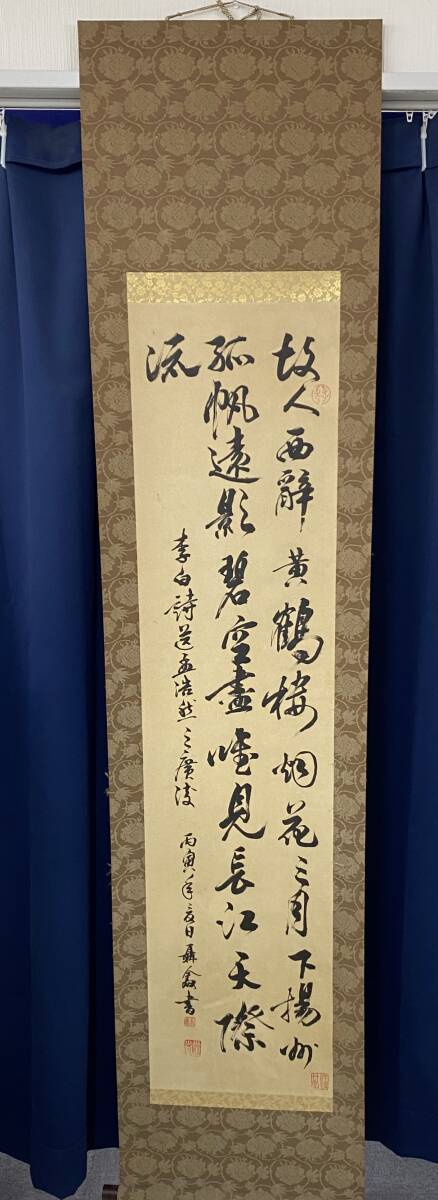 故人西辭黄鶴楼烟花三月下揚州
孤帆遠影碧空盡唯見長江天際
流
李白詩送孟浩然之廣陵 丙寅年 日聶鑫書